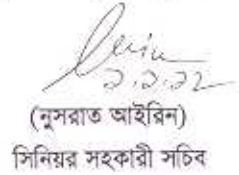 ২.১.২২
(নুসরাত আইরিন)
সিনিয়র সহকারী সচিব